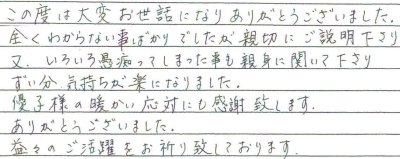 この度は大変お世話になりありがとうございました.
全くわからない事ばかりでしたが親切にご説明下さり
又、いろいろ愚痴ってしまった事も親身に聞いて下さり
ずい分気持ちが楽になりました.
優子様の暖かい応対にも感謝致します.
ありがとうございました.
益々のご活躍をお祈り致しております.